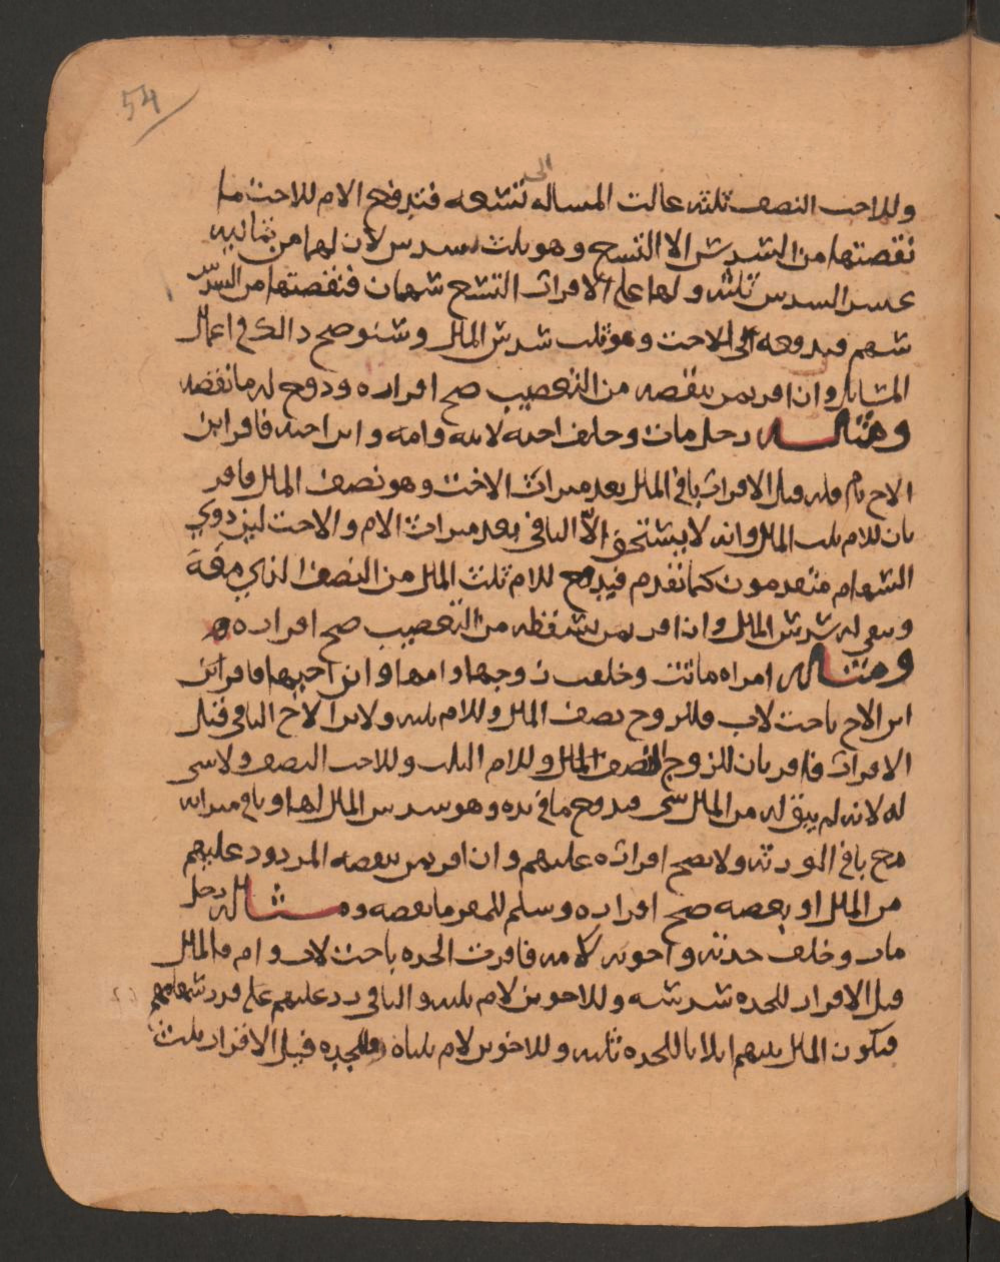 54
وللاخت النصف ثلثه عالت المساله الى تسعه فتدفع الام للاخت ما
نقصتها من السدس الا التسع وهو ثلث سدس لان لها من ثمانيه
عشر السدس ثلثه ولها على الاقرار التسع سهمان فنقصتها من السدس
سهم فيدفعه الى الاخت وهو ثلث سدس المال وسنوضح ذالك في اعمال
المسايل وان اقر بمن ينقصه من التعصيب صح اقراره ودفع له ما نقصه
ومثاله رجل مات وخلف اخته لابيه وامه وابن اخيه فاقر ابن
الاخ بام فله قبل الاقرار باقي المال بعد ميراث الاخت وهو نصف المال فاقر
بان للام ثلث المال وانه لا يستحق الا الباقي بعد ميراث الام والاخت لان ذوي
السهام متقدمون كما تقدم فيدفع للام ثلث المال من النصف الذي معه
ويبقى له سدس المال وان اقر بمن يسقطه من التعصيب صح اقراره
ومثاله امراه ماتت وخلفت زوجها وامها وابن اخيها فاقر ابن
ابن الاخ باخت لاب فللزوج نصف المال وللام ثلثه ولابن الاخ الباقي قبل
الاقرار فاقر بان للزوج النصف المال وللام الثلث وللاخت النصف ولا شي
له لانه لم يبق له من المال شي فيدفع ما في يده وهو سدس المال لها وباقي ميراثه
مع باقي الورثه ولا يصح اقراره عليهم وان اقر بمن ينقصه المردود عليهم
من المال او بعضه صح اقراره وسلم للمقر ما نقصه ومثاله رجل
مات وخلف جدته واخويه لامه فاقرت الجده باخت لاب وام فالمال
قبل الاقرار للجده سدسه وللاخوين لام ثلثه والباقي رد عليهم على قدر سهامهم
فيكون المال بينهم اثلاثا للجده ثلثه وللاخوين لام ثلثاه فللجده قبل الاقرار ثلث